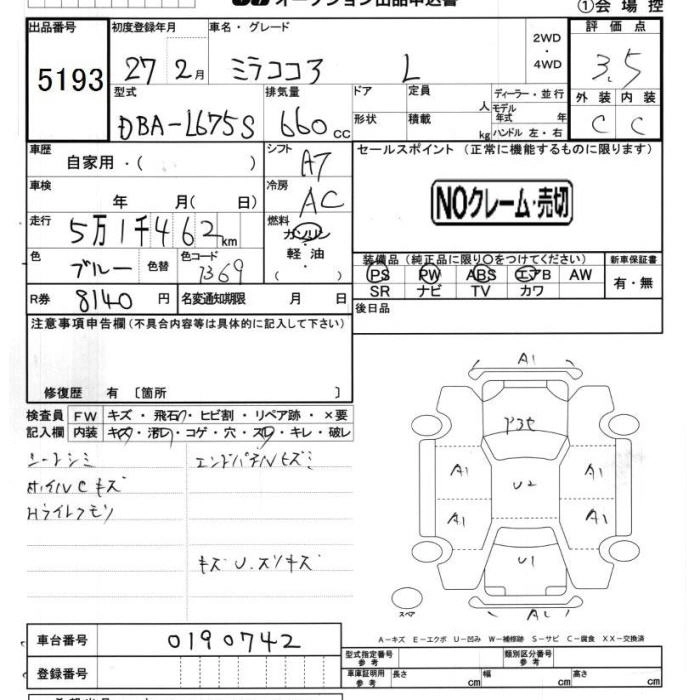 オークション出品申込書
①会場控
出品番号 初度登録年月 車名・グレード 2WD・4WD 評価点
5193 27 2月 ミラココア L 3.5
型式 排気量 ドア 定員 人 ディーラー・並行 外装 内装
DBA-L675S 660cc 形状 積載 kg モデル年式 年 ハンドル 左・右 C C
車歴 自家用・( ) シフト AT セールスポイント (正常に機能するものに限ります)
車検 年 月( 日) 冷房 AC NOクレーム・売切
走行 5万1千462km 燃料 ガソリン・軽油・( )
色 ブルー 色替 色コード B69
装備品 (純正品に限り○をつけてください) 新車保証書
PS PW ABS エアB AW 有・無
SR ナビ TV カワ
R券 8140円 名変通知期限 月 日 後日品
注意事項申告欄(不具合内容等は具体的に記入して下さい)
修復歴 有 〔箇所 〕
検査員 FW キズ・飛石・ヒビ割・リペア跡・×要
記入欄 内装 キズ・汚レ・コゲ・穴・スレ・キレ・破レ
シートシミ エンドパネルキズミ
ホイルCキズ
Hライトクモリ
キズU.スリキズ
A1
A1 A1
U2
A1 A1
U1
A1
スペア
A-キズ E-エクボ U-凹み W-補修跡 S-サビ C-腐食 XX-交換済
車台番号 0190742
登録番号
型式指定番号 参考 類別区分番号 参考
車庫証明用 参考 長さ cm 幅 cm 高さ cm